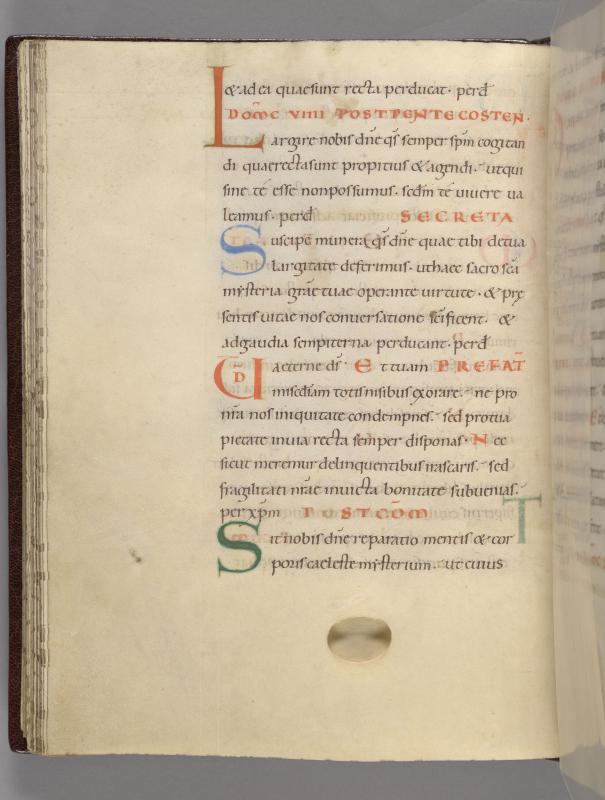 & ad ea quae sunt recta perducat· perd̄
DOM̄C VIIII POST PENTECOSTEN·
Largire nobis dn̄e q̄s semper sp̄m cogitan
di quae recta sunt propitius & agendi· ut qui
sine te esse non possumus· sedm̄ te vivere va
leamus· perd̄ SECRETA
Suscipe munera q̄s dn̄e quae tibi de tua
largitate deferimus· ut haec sacro sc̄a
mysteria grae tuae operante virtute· & prę
sentis vitae nos conversatione sc̄ificent· &
ad gaudia sempiterna perducant· perd̄
VD aeterne ds̄· Et tuam PREFAT̄
misc̄diam totis nisibus exorare· ne pro
nr̄a nos iniquitate condempnes· sed pro tua
pietate in via recta semper disponas· Nec
sicut meremur delinquentibus irascaris· sed
fragilitati nr̄ae invicta bonitate subvenias·
per xp̄m POSTCOM̄
Sit nobis dn̄e reparatio mentis & cor
poris caeleste mysterium· ut cuius
T